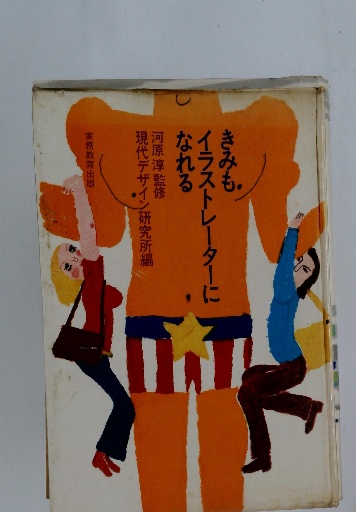 きみも
イラストレーターに
なれる
河原淳監修
現代デザイン研究所編
実務教育出版